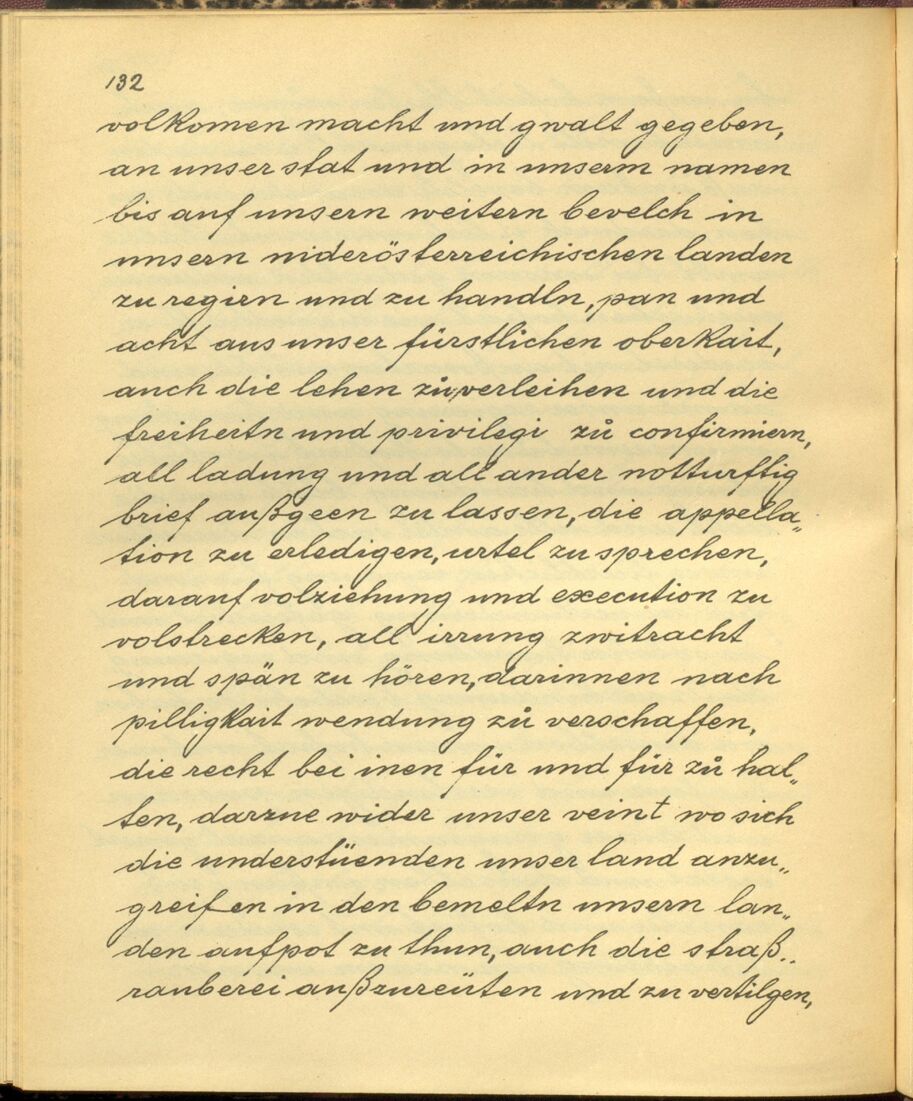 132
volkomen macht und gwalt gegeben,
an unser stat und in unserm namen
bis auf unsern weitern bevelch in
unsern niderösterreichischen landen
zu regirn und zu handln, pan und
acht aus unser fürstlichen oberkait,
auch die lehen zů verleihen und die
freiheitn und privilegi zů confirmiern,
all ladung und all ander notturftig
brief außgeen zu lassen, die appella„
tion zu erledigen, urtel zu sprechen,
darauf volziehung und execution zu
volstrecken, all irrung zwitracht
und spän zu hören, darinnen nach
pilligkait wendung zů verschaffen,
die recht bei inen für und für zů hal„
ten, darzue wider unser veint wo sich
die understüenden unser land anzu„
greifen in den bemeltn unsern lan„
den aufpot zu thun, auch die straß„
rauberei außzureüten und zu vertilgen,